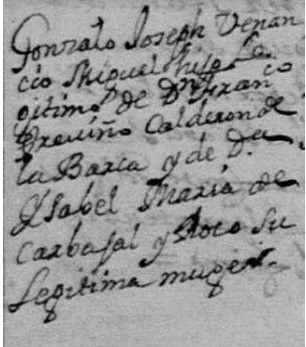 Gonzalo Joseph Venan
cio Miguel hijo Le
gitimo de Dn Fran co
Treviño Calderon de
la Barca y de Da
Ysabel Maria de
Carbajal y Soto Su
Legitima muger.